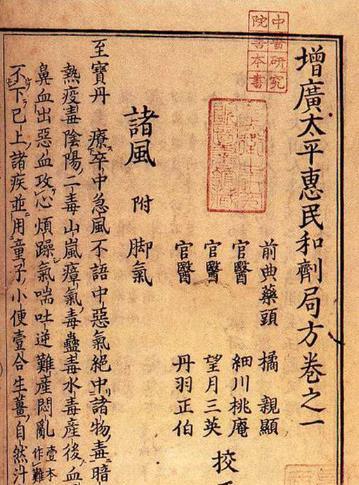 中醫研究
院善本書
增廣太平惠民和劑局方卷之一
前典藥頭 橘 親顯
官醫 細川桃庵
官醫 望月三英
官醫 丹羽正伯
校
諸風 附 脚氣
至寶丹 療卒中急風不語中惡氣絶中諸物毒暗
熱疫毒陰陽二毒山嵐瘴氣毒蠱毒水毒產後血
鼻血出惡血攻心煩躁氣喘吐逆難產悶亂壹本作
不下已上諸疾並用童子小便壹合生薑自然汁